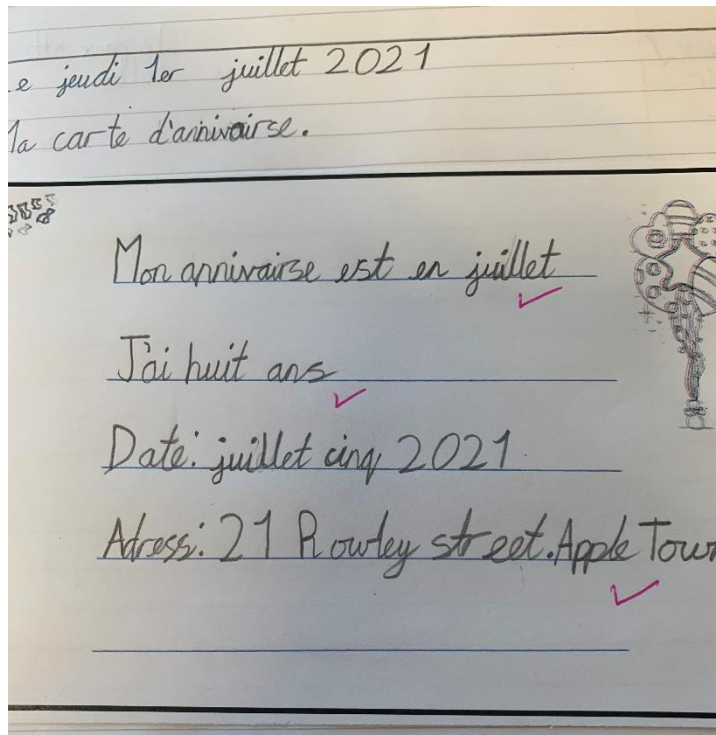 e jeudi 1er juillet 2021
la carte d'annivairse.
Mon annivairse est en juillet
J'ai huit ans
Date: juillet cinq 2021
Adress: 21 Rowley street. Apple Town